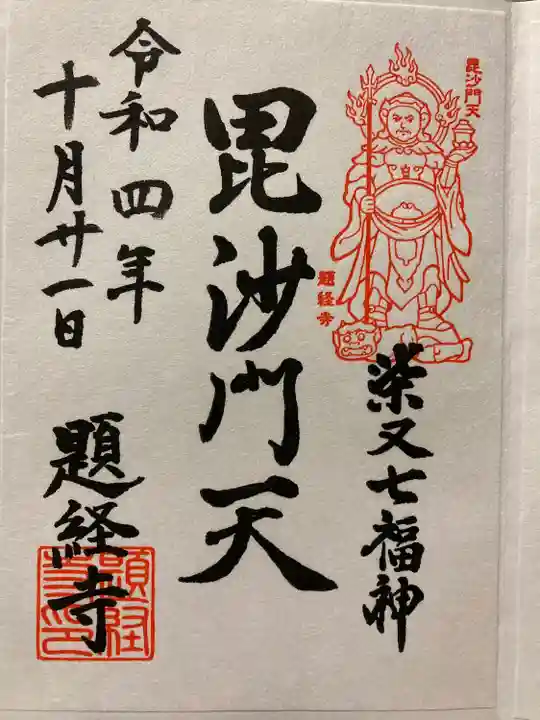 毘沙門天
題経寺
柴又七福神
毘沙門天
令和四年
十月廿一日
題経寺
題経寺印